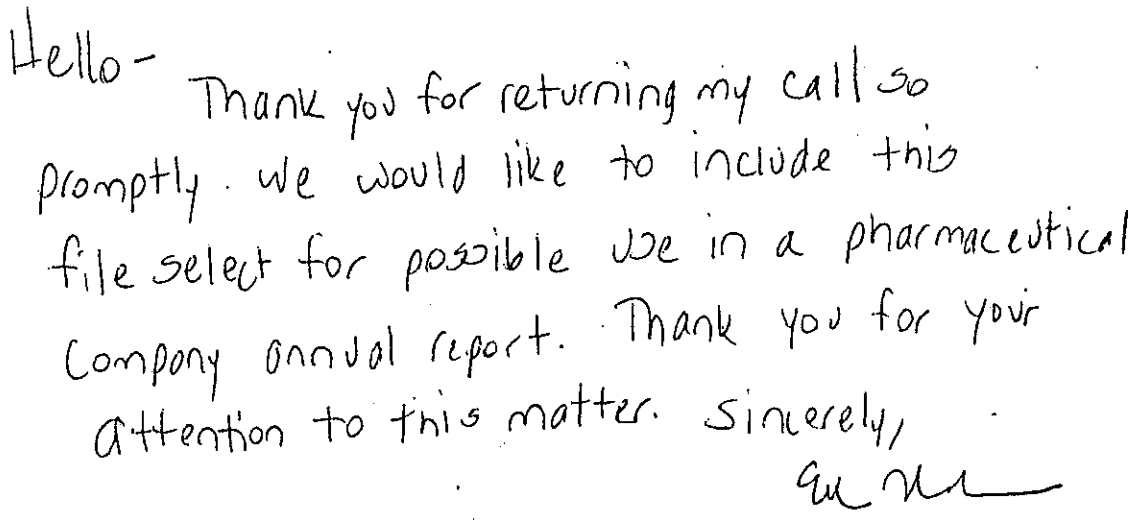 Hello-
Thank you for returning my call so
promptly. We would like to include this
file select for possible use in a pharmaceutical
Company annual report. Thank you for your
attention to this matter. Sincerely,